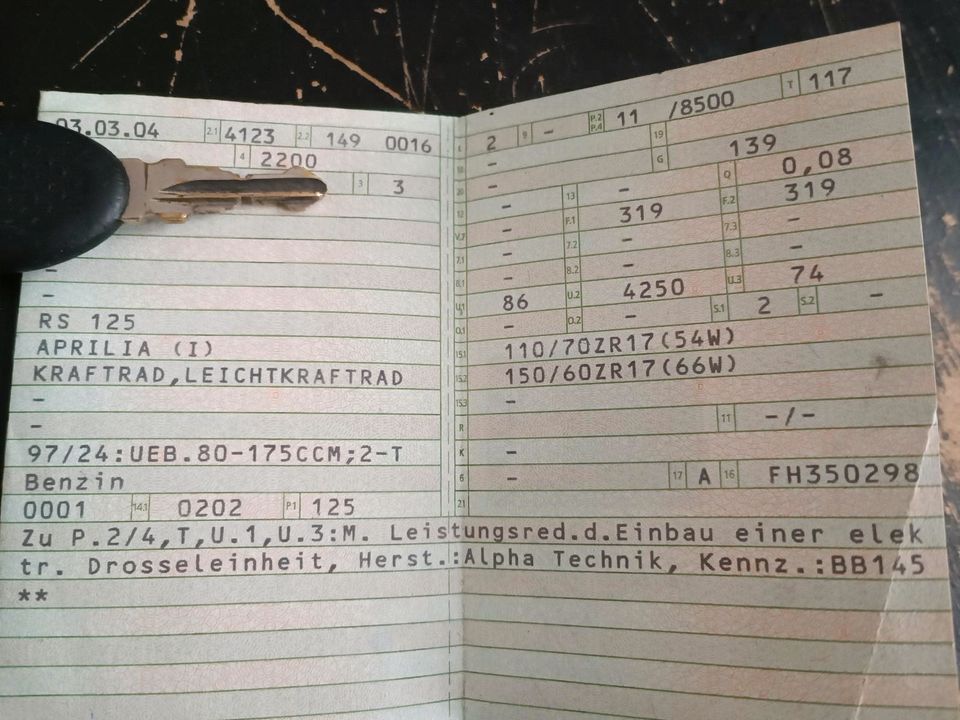 03.03.04 2.1 4123 2.2 149 0016
4 2200
3 3
-
-
RS 125
APRILIA (I)
KRAFTRAD,LEICHTKRAFTRAD
-
-
97/24:UEB.80-175CCM;2-T
Benzin
0001 14.1 0202 P.1 125
L 2 9 - P.2 P.4 11 /8500 T 117
18 - 19
20 - G 139
12 - 13 - Q 0,08
V.7 - F.1 319 F.2 319
7.1 - 7.2 - 7.3 -
8.1 - 8.2 - 8.3 -
U.1 86 U.2 4250 U.3 74
O.1 - O.2 - S.1 2 S.2 -
15.1 110/70ZR17(54W)
15.2 150/60ZR17(66W)
15.3 -
R 11 -/-
K -
6 - 17 A 16 FH350298
21
Zu P.2/4,T,U.1,U.3:M. Leistungsred.d.Einbau einer elek
tr. Drosseleinheit, Herst.:Alpha Technik, Kennz.:BB145
**